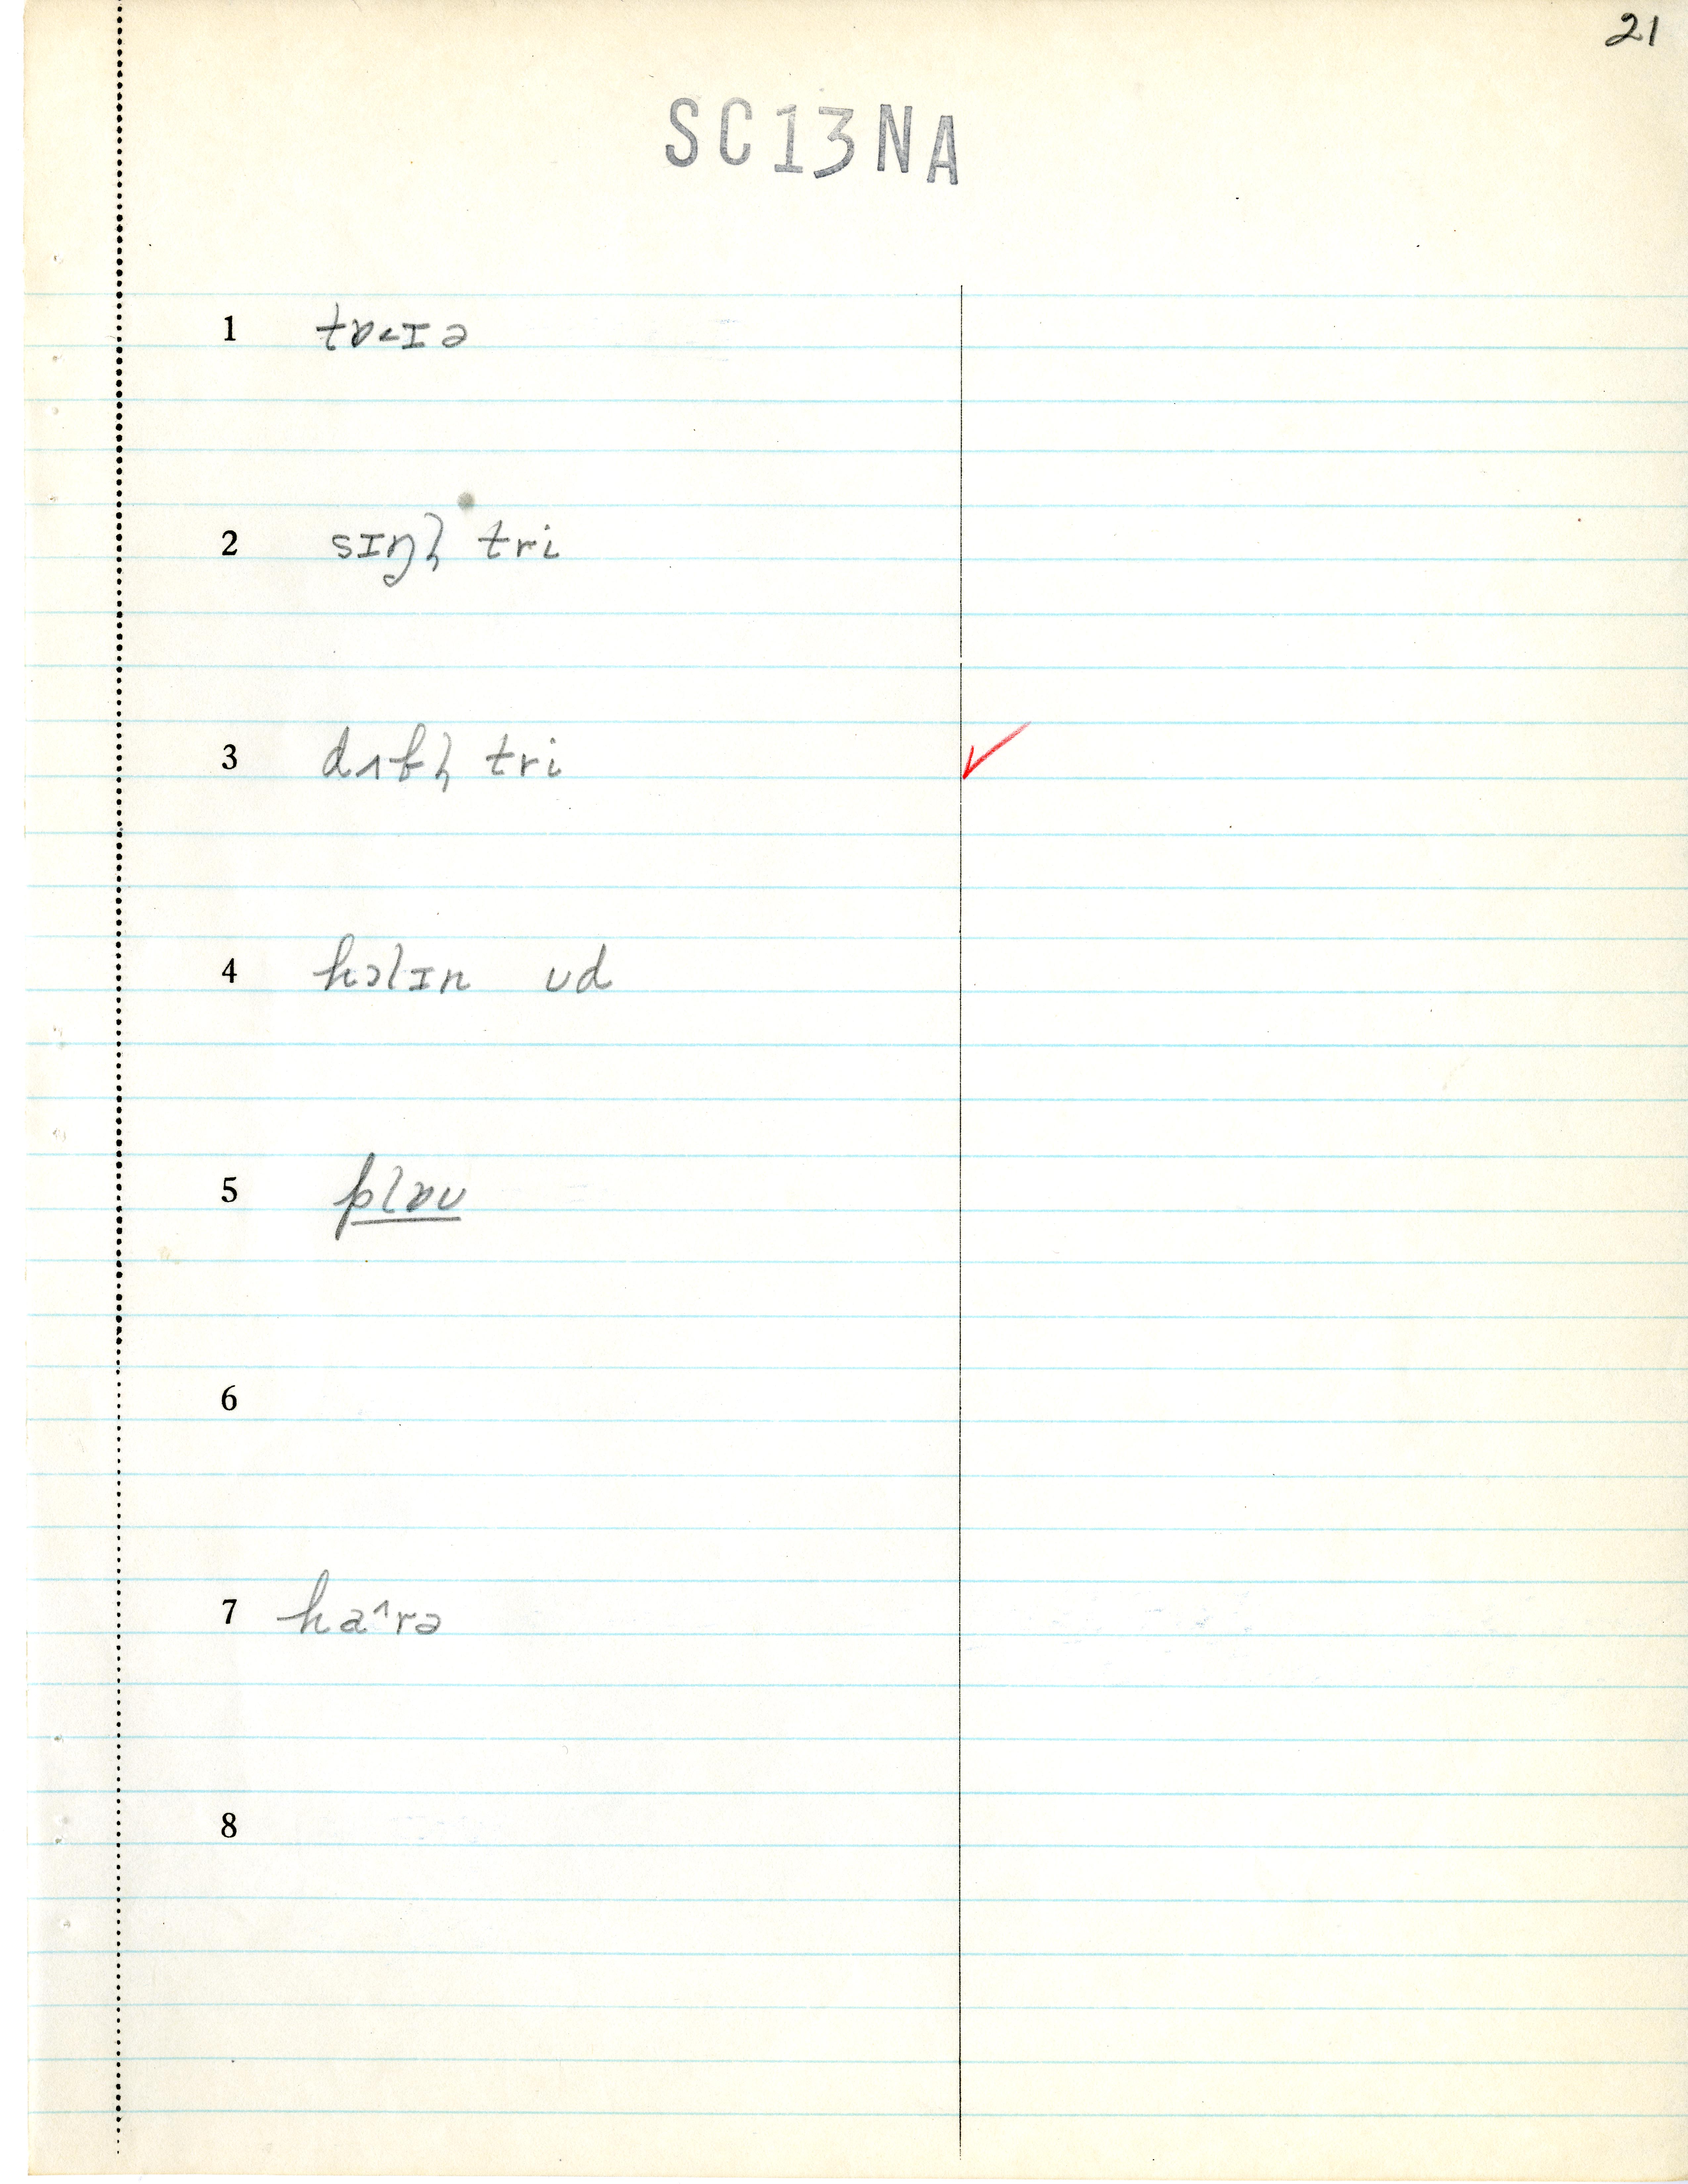 21
SC13NA
1 tɒ˂ɪə
2 sɪŋɫ̩ tri
3 dʌbɫ̩ tri
4 hɔlɪn ʊd
5 plɒʊ
6
7 ha^rə
8